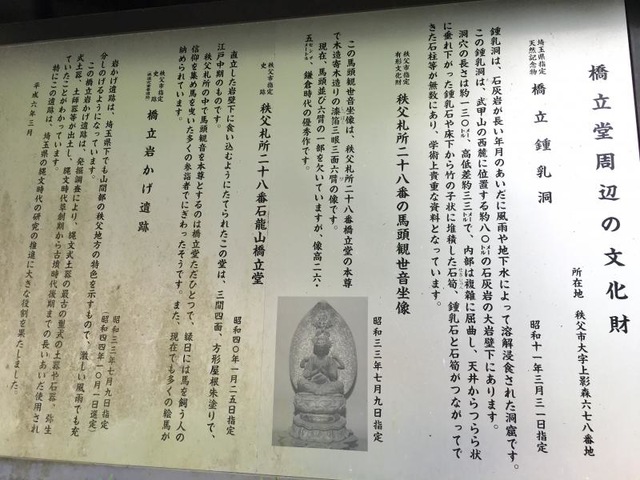 橋立堂周辺の文化財
所在地 秩父市大字上影森六七八番地
埼玉県指定
天然記念物
橋立鍾乳洞
昭和十一年三月三一日指定
鍾乳洞は、石灰岩が長い年月のあいだに風雨や地下水によって溶解浸食された洞窟です。
この鍾乳洞は、武甲山の西麓に位置する約八〇メートルの石灰岩の大岩壁下にあります。
洞穴の長さは約一三〇メートル、高低差約三三メートルで、内部は複雑に屈曲し、天井からつらら状
に垂れ下がった鍾乳石や床下から竹の子状に堆積した石筍、鍾乳石と石筍がつながってで
きた石柱等が無数にあり、学術上貴重な資料となっています。
秩父市指定
有形文化財
秩父札所二十八番の馬頭観世音坐像
昭和三三年七月九日指定
この馬頭観世音坐像は、秩父札所二十八番橋立堂の本尊
で木造寄木造りの漆箔三眼三面六臂の像です。
現在、馬頭並び六臂の一部を欠いていますが、像高二六・
五センチ、鎌倉時代の優秀作です。
秩父市指定
史跡
秩父札所二十八番石龍山橋立堂
昭和四〇年一月二五日指定
直立した岩壁下に食い込むようにたてられたこの堂は、三間四面、方形屋根朱塗りで、
江戸中期のものです。
秩父札所の中で馬頭観音を本尊とするのは橋立堂ただひとつで、縁日には馬を飼う人の
信仰を集め馬を曳いた多くの参詣者でにぎわったそうです。また、現在でも多くの絵馬が
納められています。
秩父市指定
史跡
橋立岩かげ遺跡
昭和三三年七月九日指定
(昭和四四年一〇月一日選定)
岩かげ遺跡は、埼玉県下でも山間部の秩父地方の特色を示すもので、激しい風雨でも充
分しのげるようになっています。
この橋立岩かげ遺跡は、発掘調査により、縄文式土器の最古の型式の土器や石器、弥生
式土器、土師器等が出土し、縄文時代草創期から古墳時代後期までの長いあいだ使用され
ていたことがわかっています。
特にこの遺跡は、埼玉県の縄文時代の研究の推進に大きな役割を果たしました。
平成六年三月